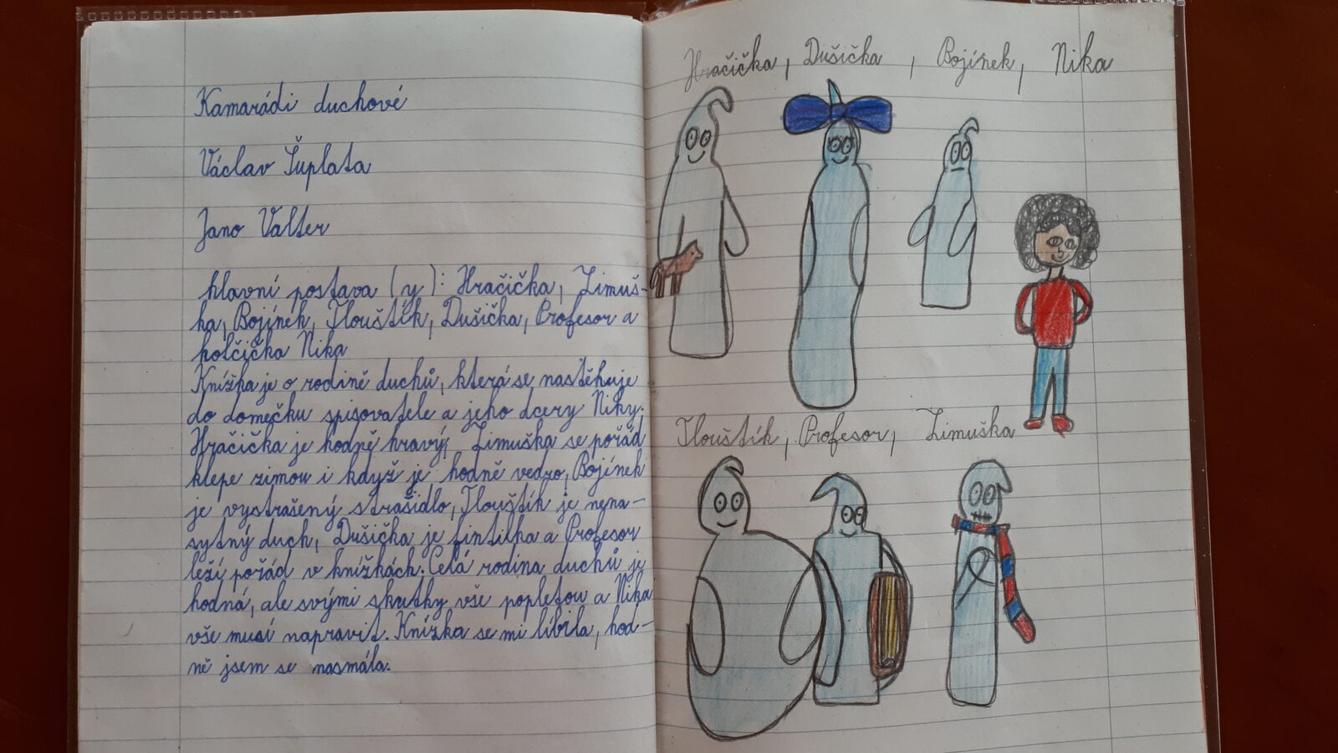 Kamarádi duchové
Václav Šuplata
Jano Valter
hlavní postava (y): Hračička, Zimuš-
ka, Bojínek, Tlouštík, Dušička, Profesor a
holčička Nika
Knížka je o rodině duchů, která se nastěhuje
do domečku spisovatele a jeho dcery Niky.
Hračička je hodně hravý, Zimuška se pořád
klepe zimou i když je hodně vedro, Bojínek
je vystrašený strašidlo, Tlouštík je nena-
sytný duch, Dušička je fintilka a Profesor
leží pořád v knížkách. Celá rodina duchů je
hodná, ale svými skutky vše popletou a Nika
vše musí napravit. Knížka se mi líbila, hod-
ně jsem se nasmála.
Hračička, Dušička, Bojínek, Nika
Tlouštík, Profesor, Zimuška